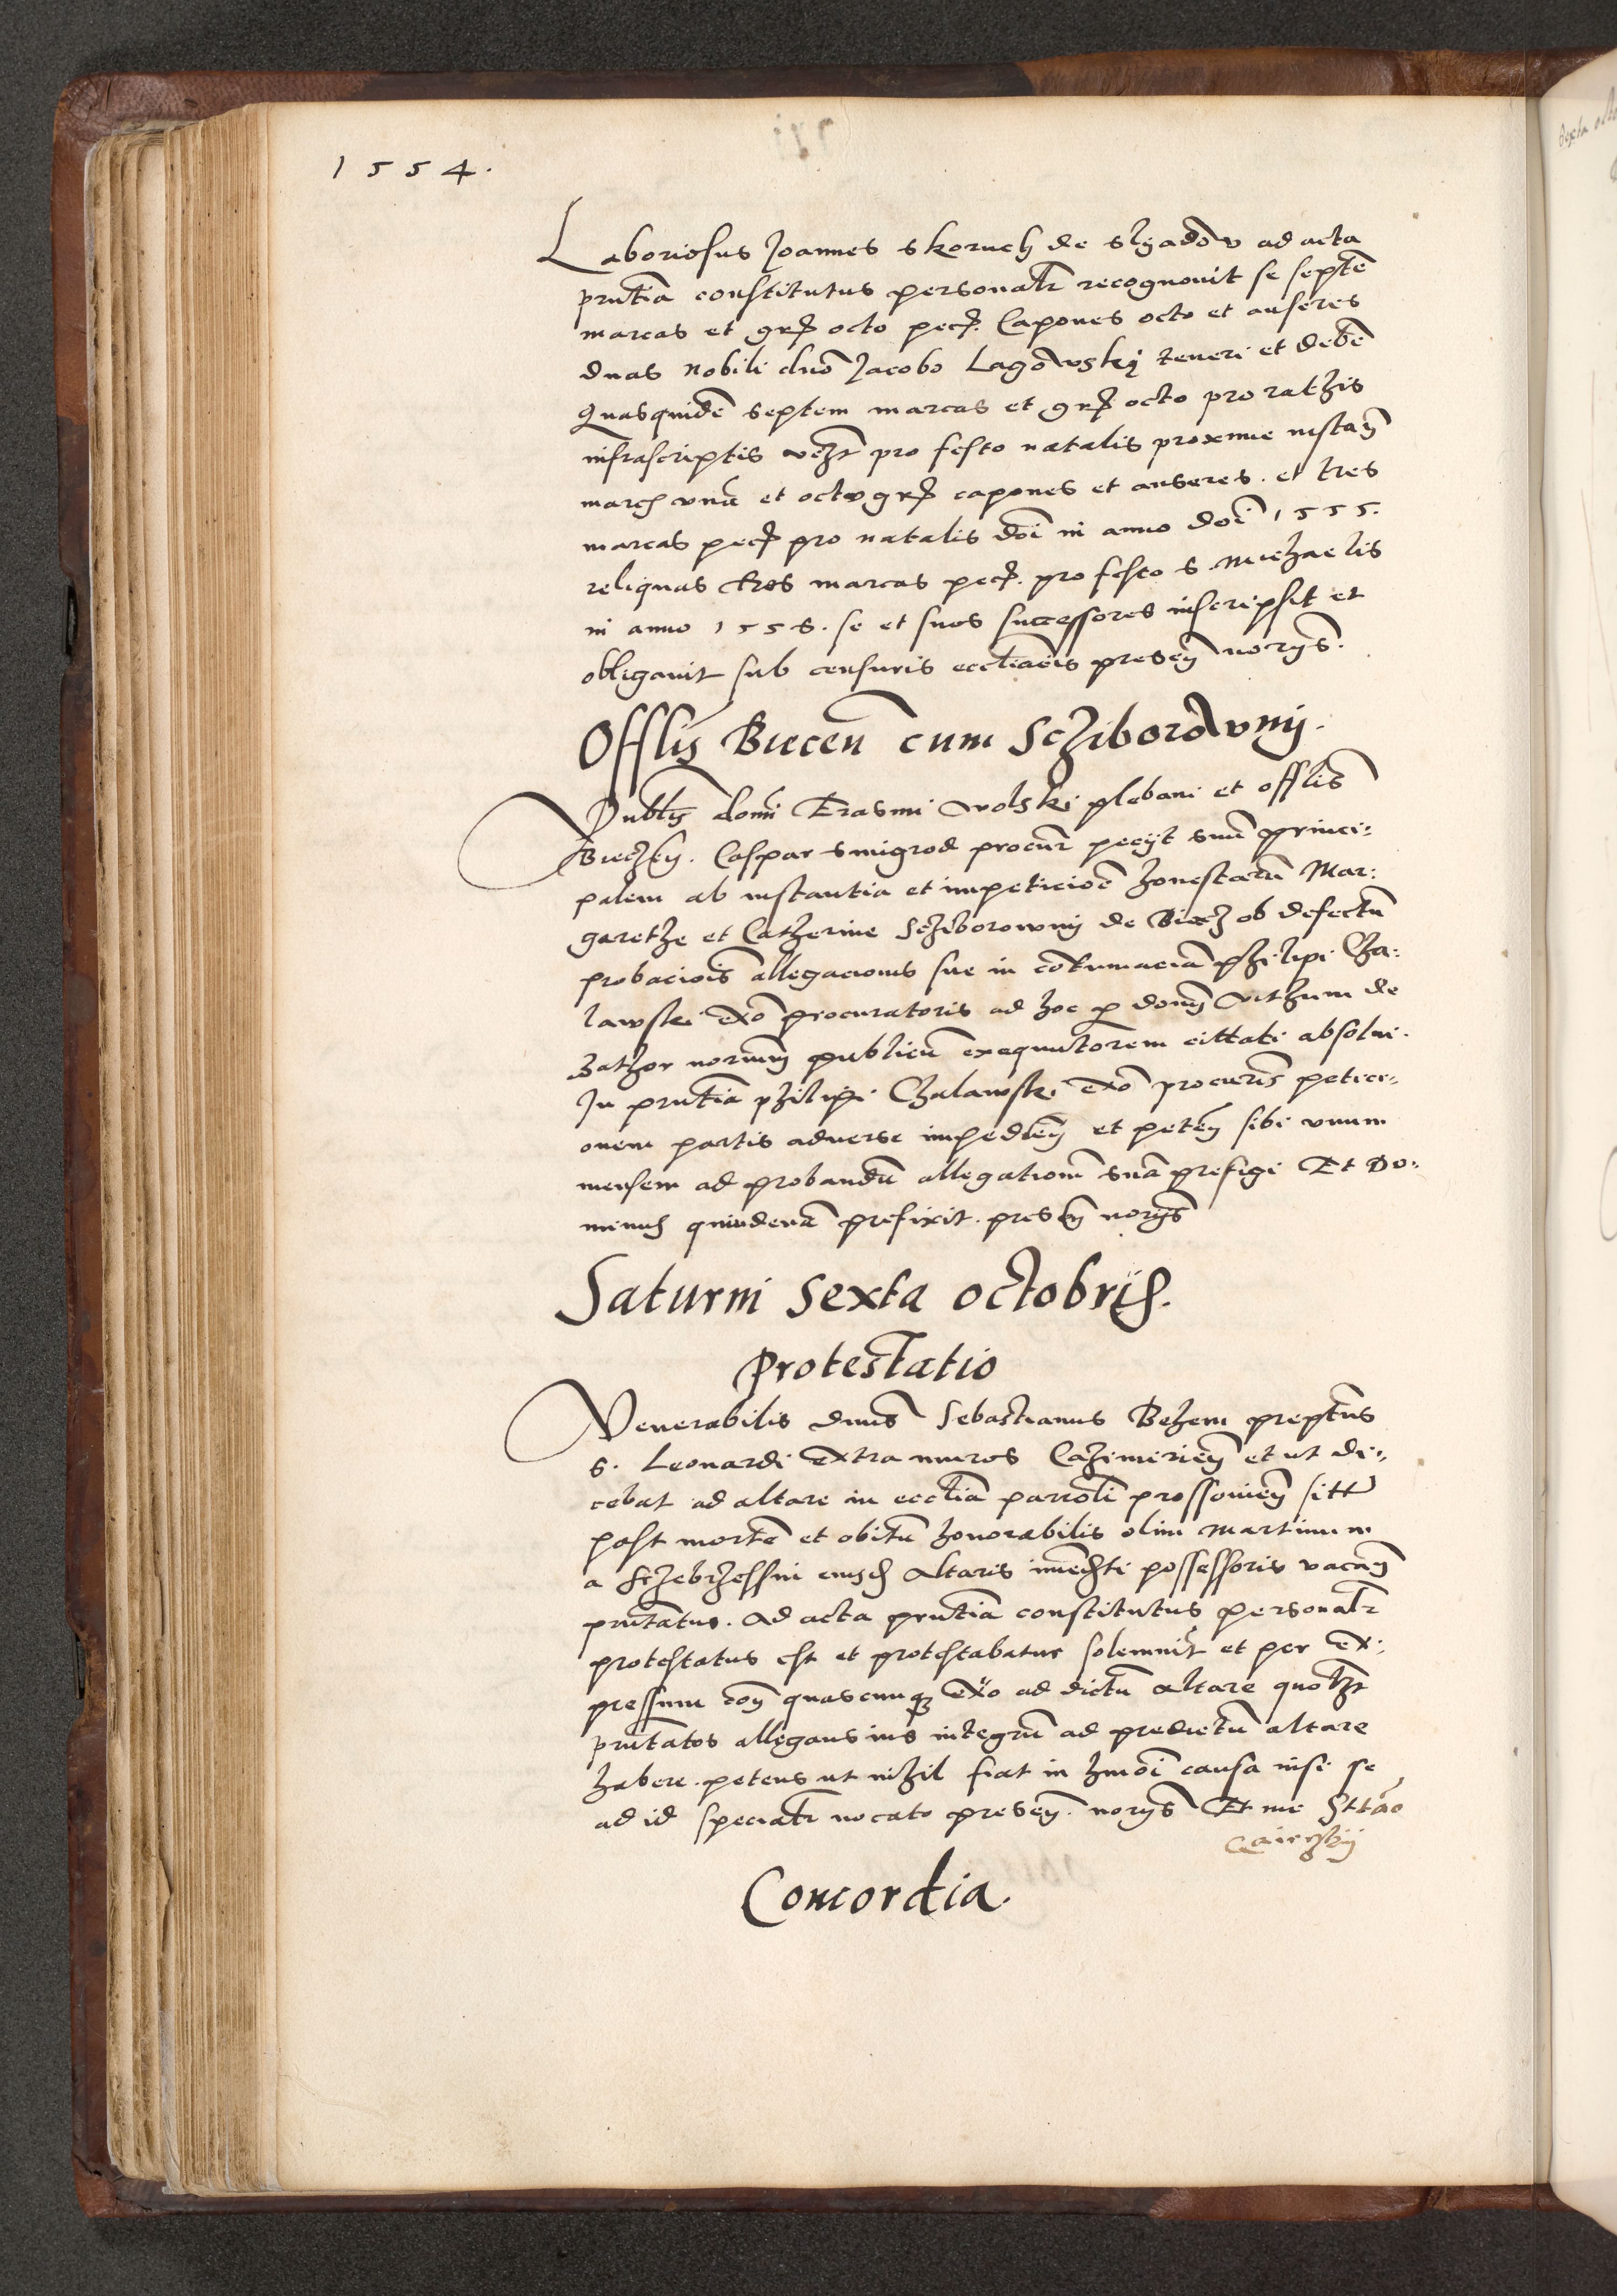 1554.
Laboriosus Joannes Skoruch de Slyadow ad acta
prntia constitutus personalr recognovit se septe
marcas et grß octo pecß. Capones octo et anseres
duas Nobili dno Jacobo Lagowsky teneri et debe
Quasquide septem marcas et grß octo pro rathis
infrascriptis vczt pro festo natalis proxime instan
march una et octo grß capones et anseres. et tres
marcas pecß pro natalis doi in anno doi 1555.
reliquas tres marcas pecß. pro festo S. Michaelis
in anno 1556. se et suos successores inscripsit et
obligavit sub censuris eccliacis presen norys.
Offlis Biecen cum Scziborowny.
Dublis domi Erasmi Wolski plebani et offlis
Bieczky. Caspar Smigrod procur pecyt suu princi:
palem ab instantia et impeticioe honestaru Mar:
garethe et Catherine Scziborowny de Biecz ob defectu
probaciois allegacionis sue in cotumacia Philipi Cha:
lawski exo procuratoris ad hoc p donu Vithum de
Bathor noriumq publicu exequutorem cittati absolui.
In prntia philipi Chalawski exo procuris petici-
onem partis adverse impedien et peten sibi unum
mensem ad probandu allegationem sua prefigi Et Do:
minus quindena prefixit. presen norys
Saturni Sexta octobris.
Protestatio
Venerabilis dnus Sebastianus Behem preptus
S. Leonardi extra muros Cazimirien et ut di:
cebat ad altare in ecclia parroli prossovien sitt
post morte et obitu honorabilis olim Martinum
a Sczebrzessin eiusd altaris imedti possessoris vacan
prntatus. Ad acta prntia constitutus personalr
protestatus est et protestabatur solemnitr et per ex:
pressum con quascunq exo ad dictu altare quotzt
prntatos allegans ius integru ad predictu altare
habere. petens ut nihil fiat in hmoi causa nisi se
ad id specialr vocato presen. norys Et me Sttao
Concordia.